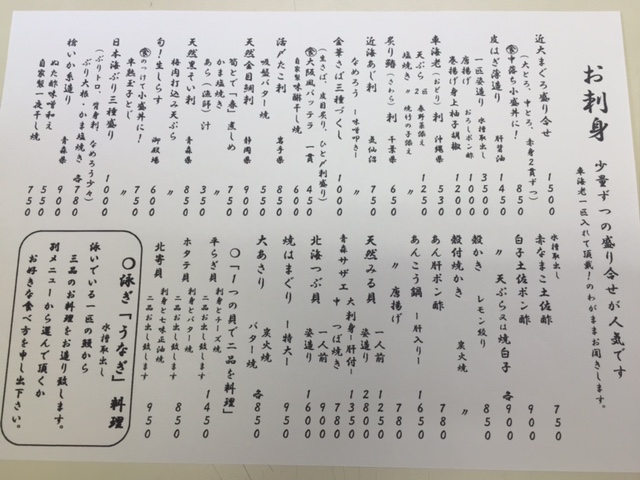 お刺身
少量ずつの盛り合せが人気です
車海老一匹入れて頂戴!のわがままお聞きします。
近大まぐろ盛り合せ 1500
(大とろ、中とろ、赤身2貫ずつ)
中落ち小盛丼に! 850
皮はぎ薄造り 肝醤油 1450
一匹姿造り 水槽取出し 3500
唐揚げ おろしポン酢 1000
巻揚げ身上柚子胡椒 1200
車海老(おどり)刺 沖縄県 530
天ぷら 2匹 春野菜添え 1250
塩焼き 〃 焼竹の子添え 〃
炙り鰆(さわら)刺 千葉県 650
近海あじ刺 気仙沼 750
なめろう ー味噌叩きー 〃
金華さば三種づくし 1000
(生さば、皮目炙り、ひと〆刺盛り)
大阪風バッテラ 一貫 450
自家製味醂干し焼 600
活〆たこ刺 岩手県 850
吸盤バター焼 550
天然金目鯛刺 静岡県 900
筍とで「一番」煮しめ 750
かま塩焼き 〃
あら(漁師)汁 350
天然黒そい刺 青森県 850
梅肉打込み天ぷら 〃
旬!生しらす 御殿場 600
のっけて小盛丼に! 〃
半熟玉子とじ 〃
日本海ぶり三種盛り 1200
(ぶりトロ、背身刺、なめろう少々)
ぶり大根、かま塩焼き 各780
槍いか糸造り 青森県 900
ぬた酢味噌和え 550
自家製一夜干し焼 750
水槽取出し
赤なまこ土佐酢 750
白子土佐ポン酢 900
〃 天ぷら又は焼白子 各900
殻かき レモン絞り 850
殻付焼かき 炭火焼 〃
あん肝ポン酢 780
あんこう鍋 ー肝入りー 1650
〃 唐揚げ 780
天然みる貝 一人前 1250
姿造り 2800
青森サザエ 大 刺身ー肝付ー 1350
中 つぼ焼き 780
北海つぶ貝 一人前 900
姿造り 1600
焼はまぐり ー特大ー 950
大あさり 炭火焼
バター焼 各850
○「1つの貝で二品を料理」
平らぎ貝 刺身とチーズ焼
二品お出し致します 1450
ホタテ貝 刺身とバター焼
二品お出し致します 850
北寄貝 刺身と七味正油焼
二品お出し致します 950
○泳ぎ「うなぎ」料理
水槽取出し
泳いでいる一匹の鰻から
三品のお料理をお造り致します。
別メニューから選んで頂くか
お好きな食べ方を申し出下さい。